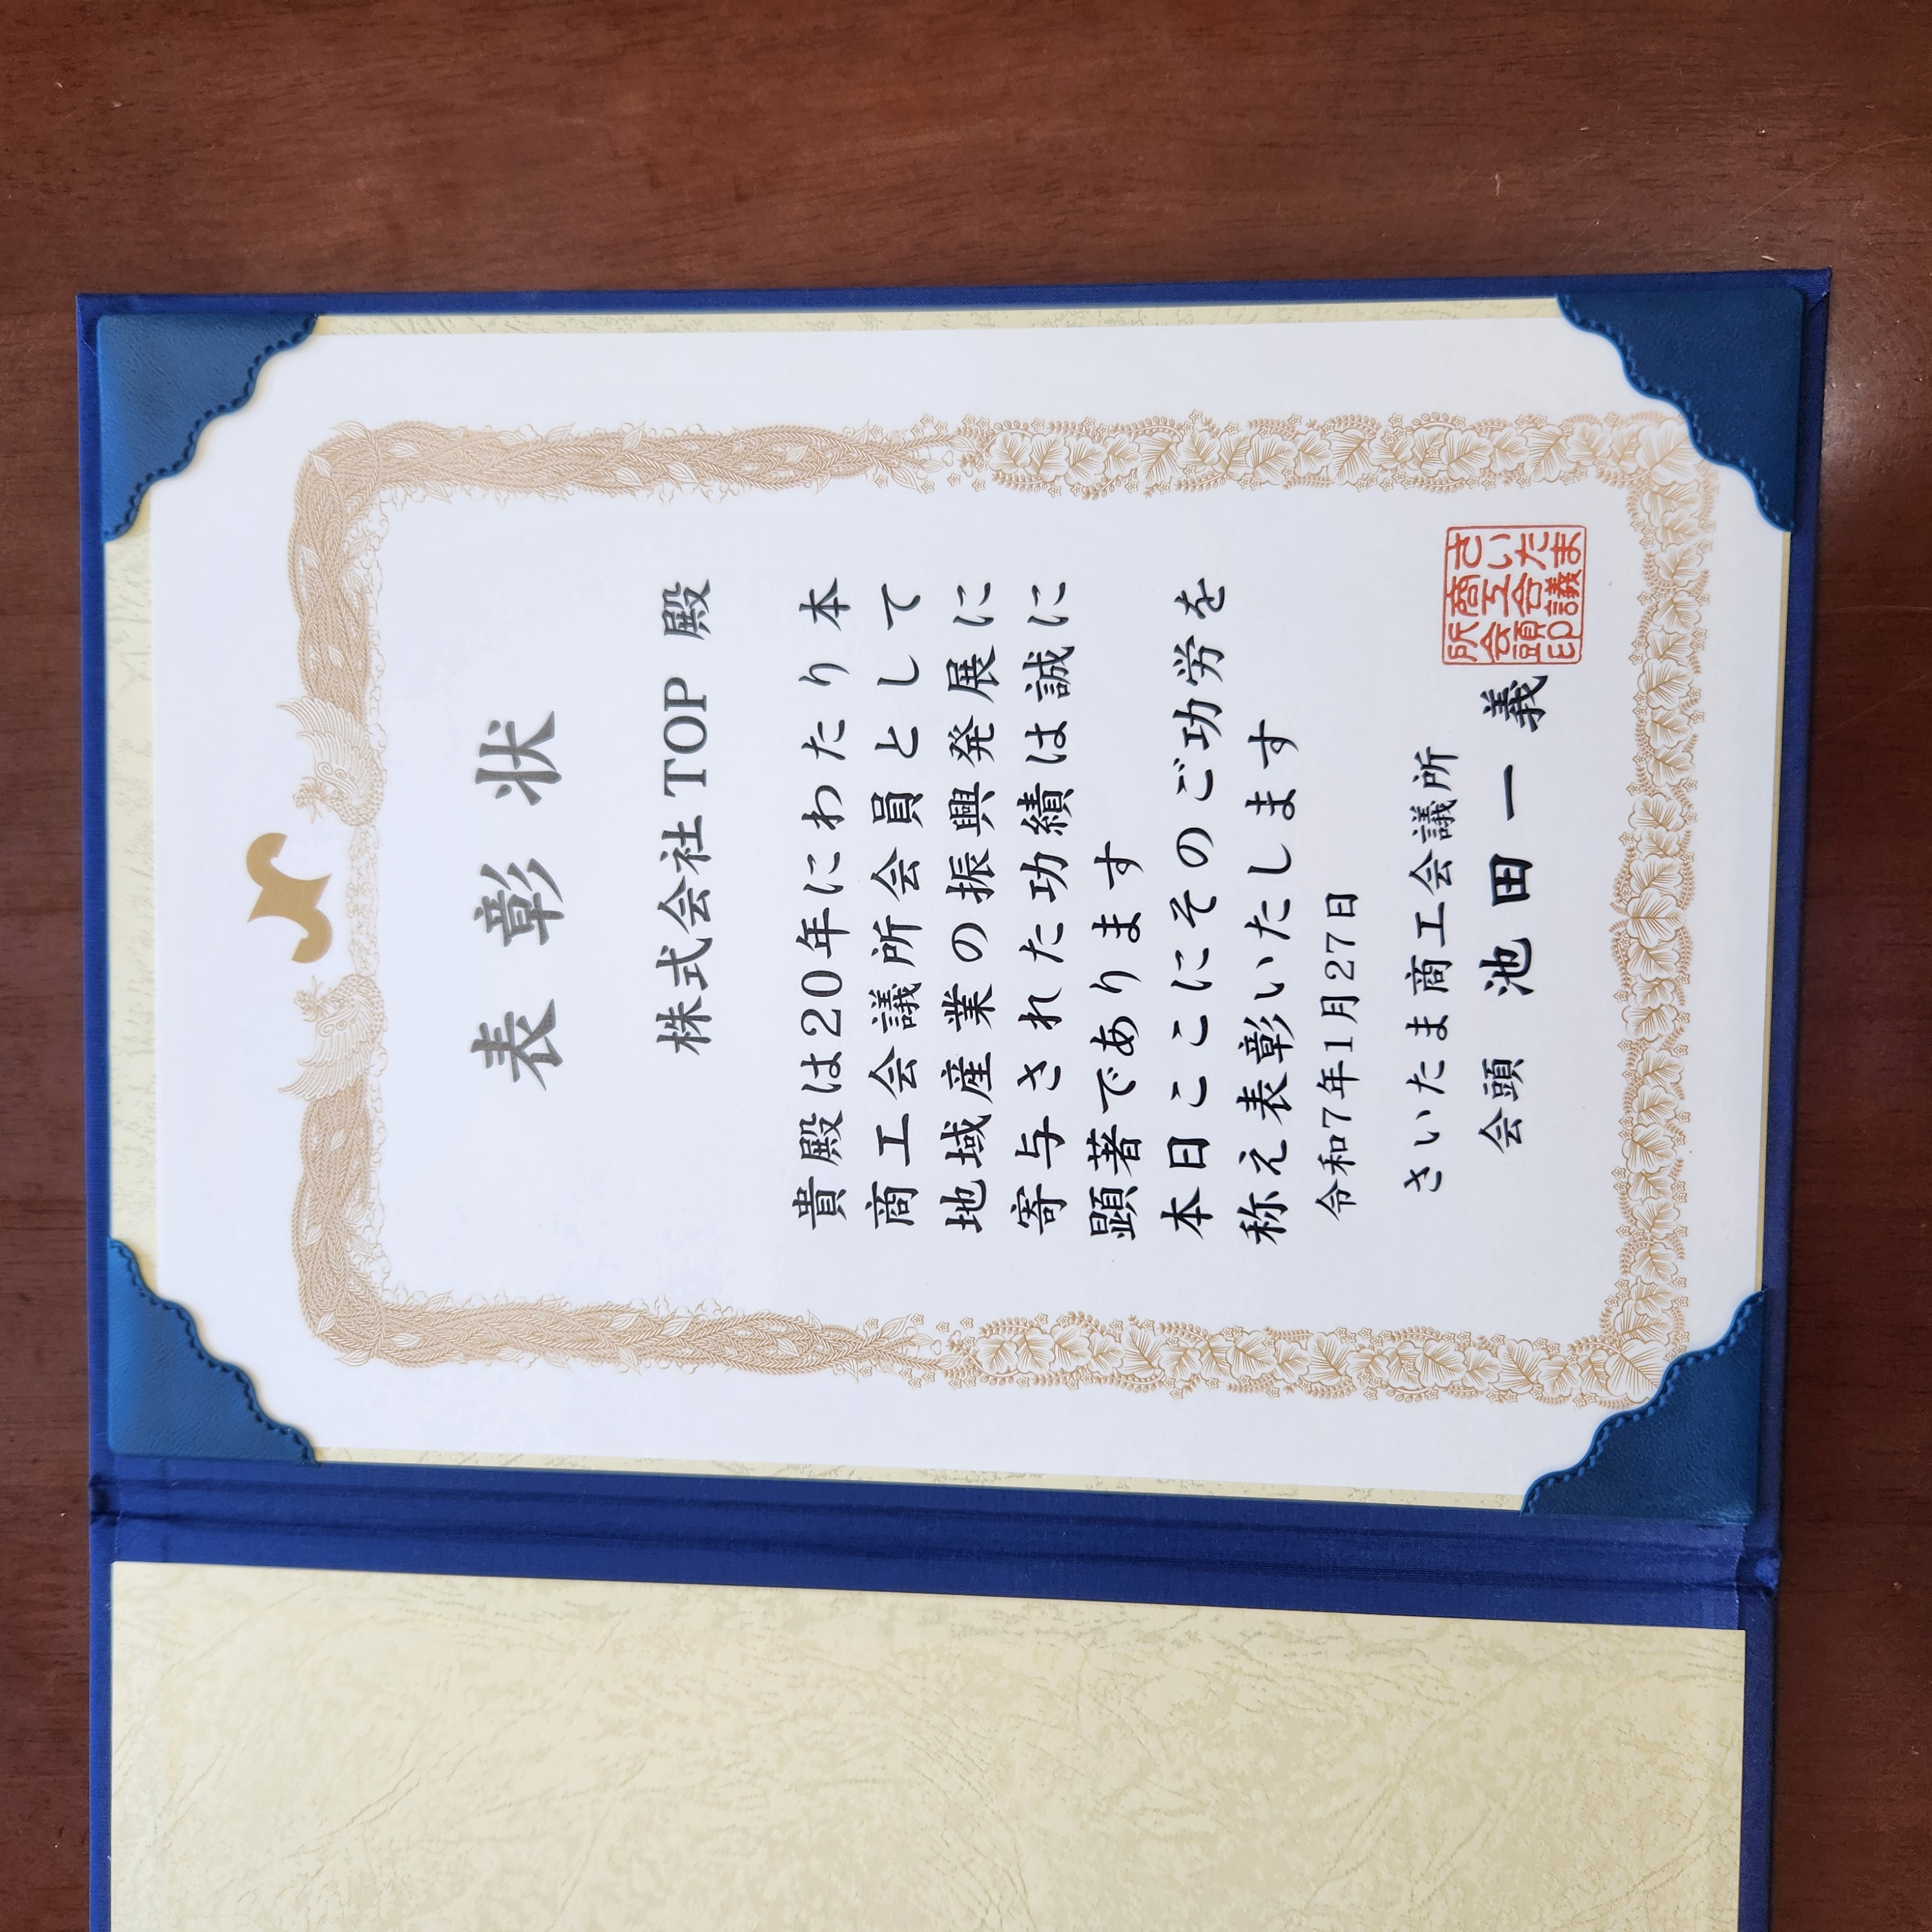 表彰状
株式会社TOP 殿
貴殿は20年にわたり本
商工会議所会員として
地域産業の振興発展に
寄与された功績は誠に
顕著であります
本日ここにそのご功労を
称え表彰いたします
令和7年1月27日
さいたま商工会議所
会頭 池田一義
さいたま
商工会議
所会頭印